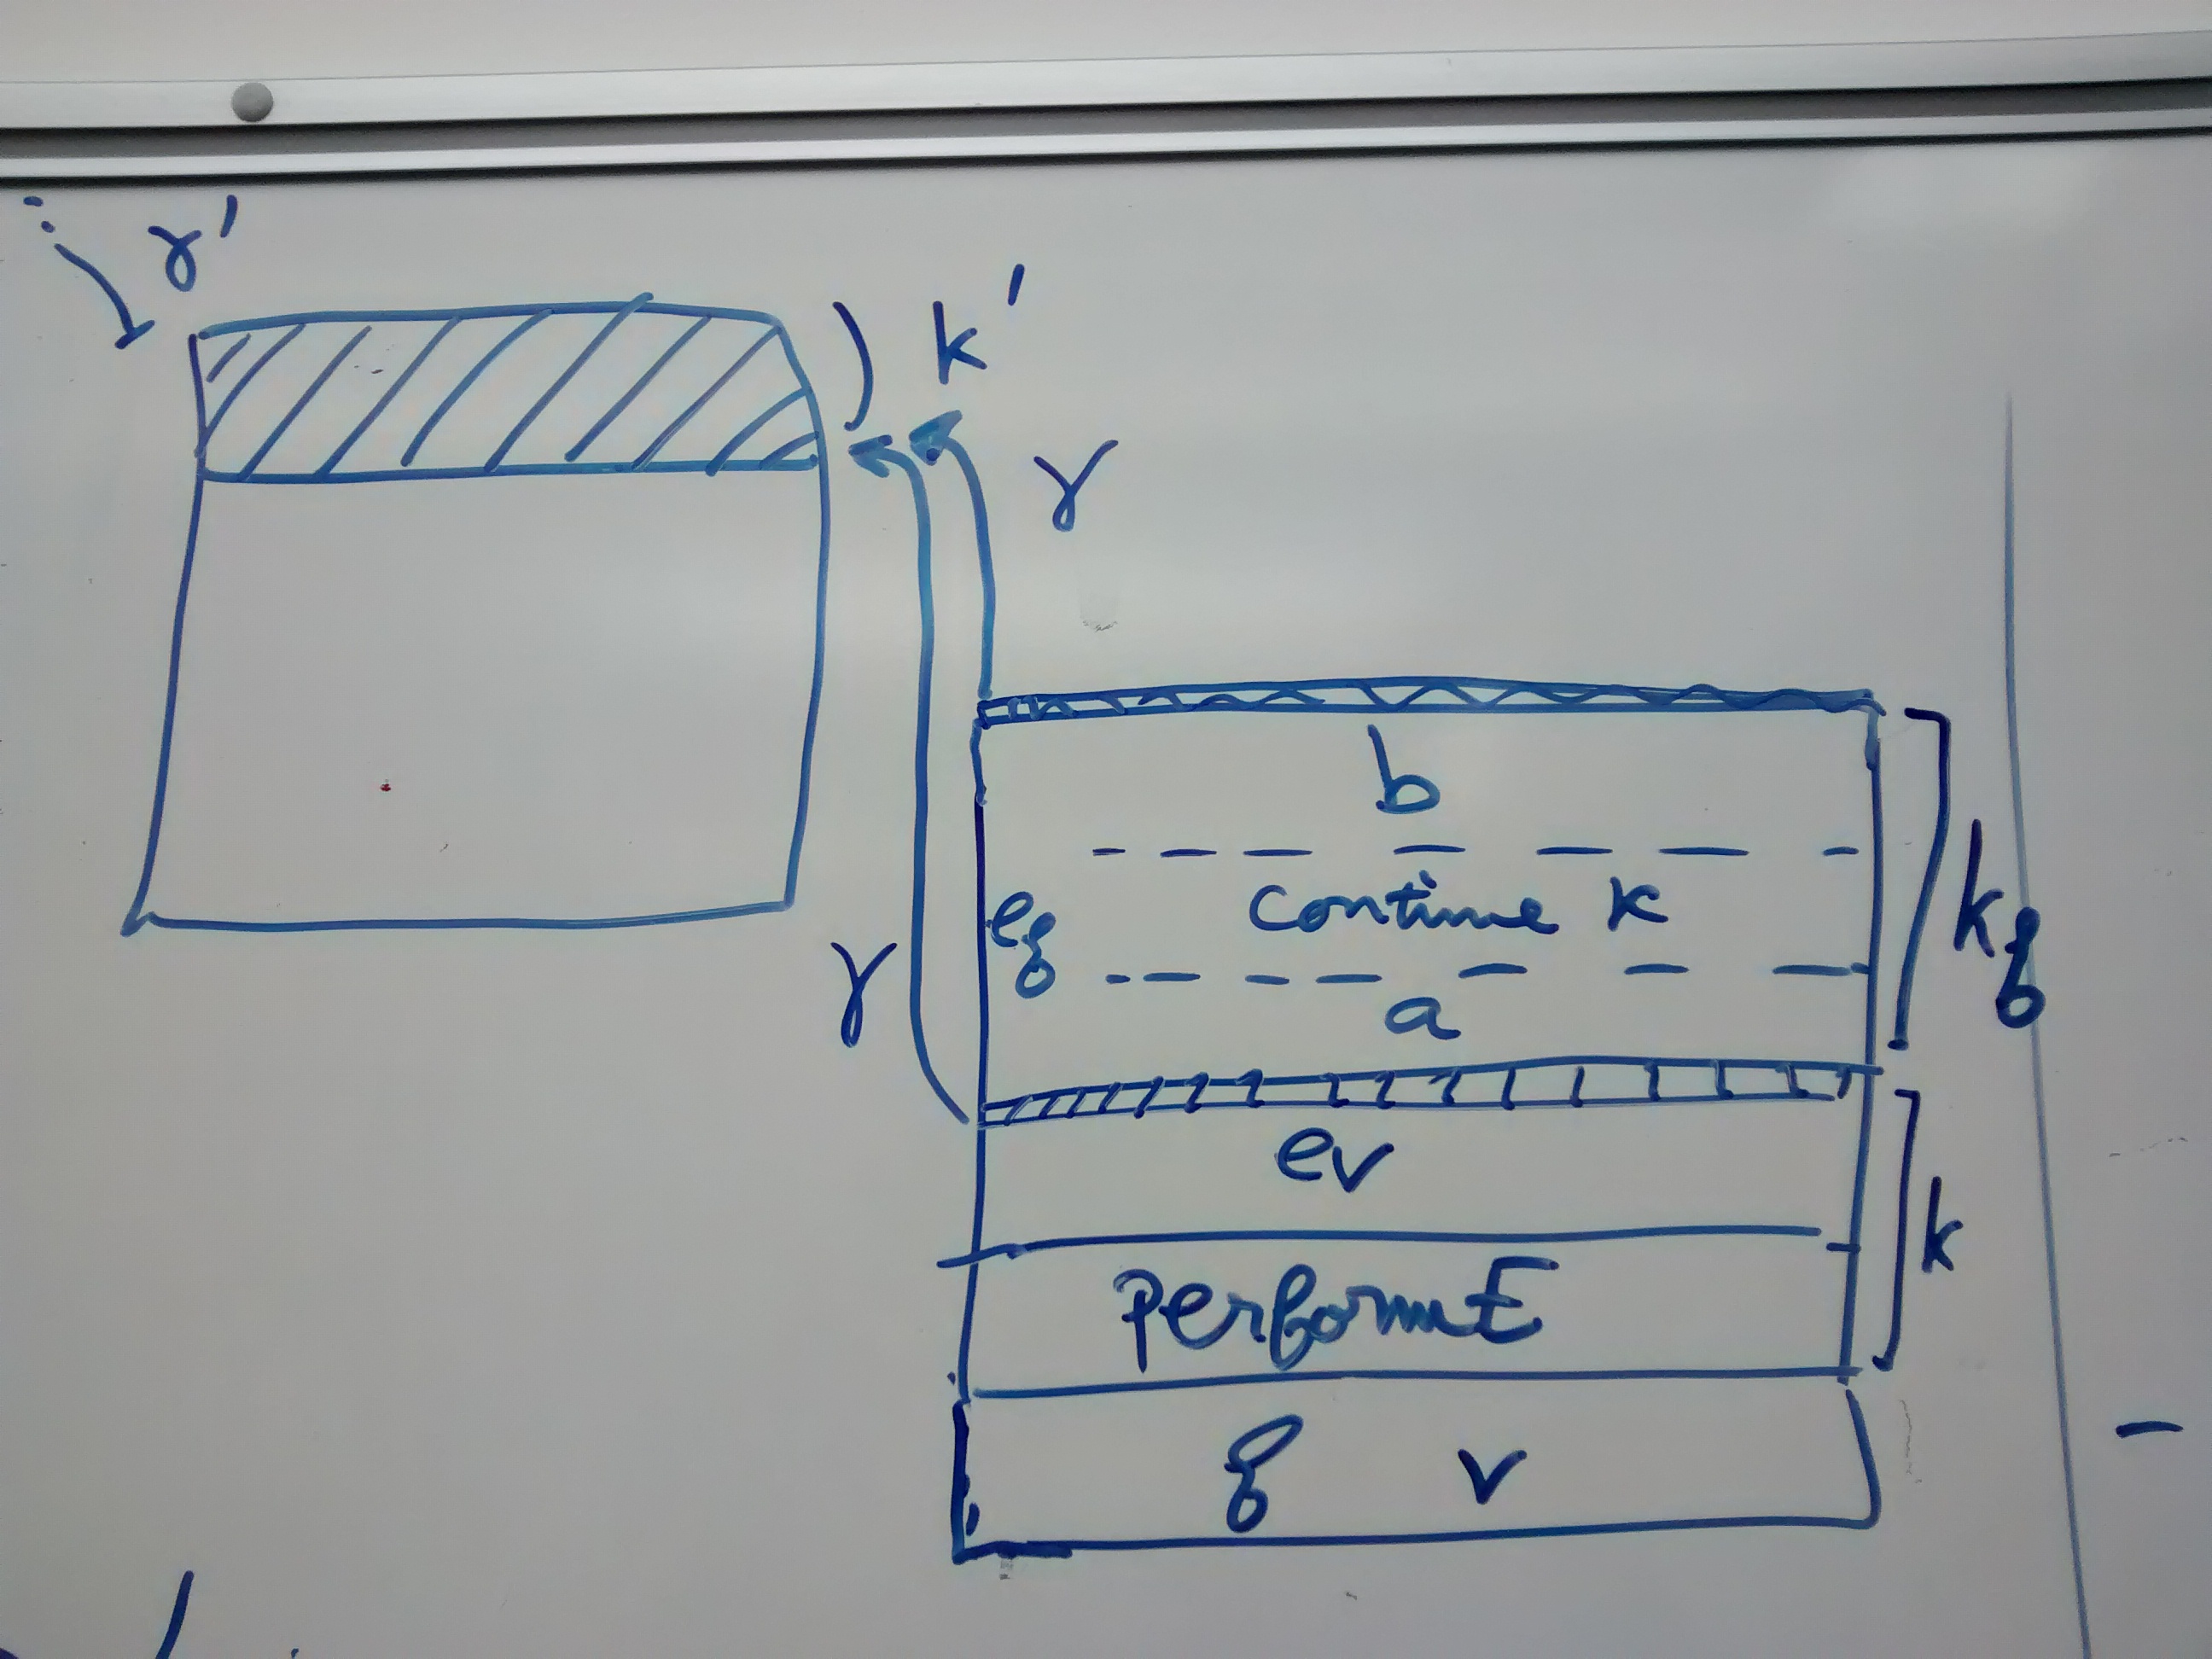 γ'
k'
γ
b
continue k
eg
a
kg
γ
ev
k
perform E
g v